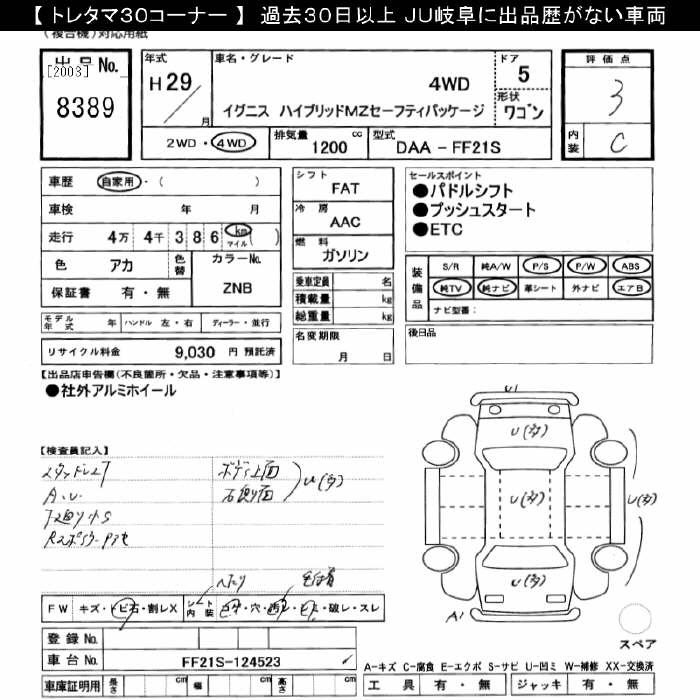 【 トレタマ30コーナー 】 過去30日以上 JU岐阜に出品歴がない車両
(複合機)対応用紙
出 品 No.
[2003]
8389
年式
H 29 / 月
車名・グレード
4WD
イグニス ハイブリッドMZセーフティパッケージ
ドア
5
形状
ワゴン
2WD ・ 4WD
排気量
1200 cc
型式
DAA - FF21S
評 価 点
3
内装
C
車歴 自家用 ・ ( )
車検 年 月
走行 4万 4千 3 8 6 km マイル ( )
色 アカ
色替
カラーNo.
ZNB
保証書 有 ・ 無
モデル年式 年 ハンドル 左 ・ 右 ディーラー ・ 並行
リサイクル料金 9,030 円 預託済
シフト
FAT
冷 房
AAC
燃 料
ガソリン
乗車定員 名
積載量 kg
総重量 kg
名変期限
月 日
セールスポイント
●パドルシフト
●プッシュスタート
●ETC
装備品
S/R 純A/W P/S P/W ABS
純TV 純ナビ 革シート 外ナビ エアB
ナビ型番：
後日品
【出品店申告欄(不良箇所・欠品・注意事項等)】
●社外アルミホイール
【検査員記入】
A.U.
ボディ上面
右側り面
U(多)
U1
U(多)
U(多)
U(多)
U(多)
A1
スペア
FW キズ・トビ石・割レX
シート内装
コゲ・穴・汚レ・シミ・破レ・スレ
登 録 No.
車 台 No. FF21S-124523
車庫証明用 長さ cm 幅 cm 高さ cm
A-キズ C-腐食 E-エクボ S-サビ U-凹ミ W-補修 XX-交換済
工 具 有 ・ 無 ジャッキ 有 ・ 無